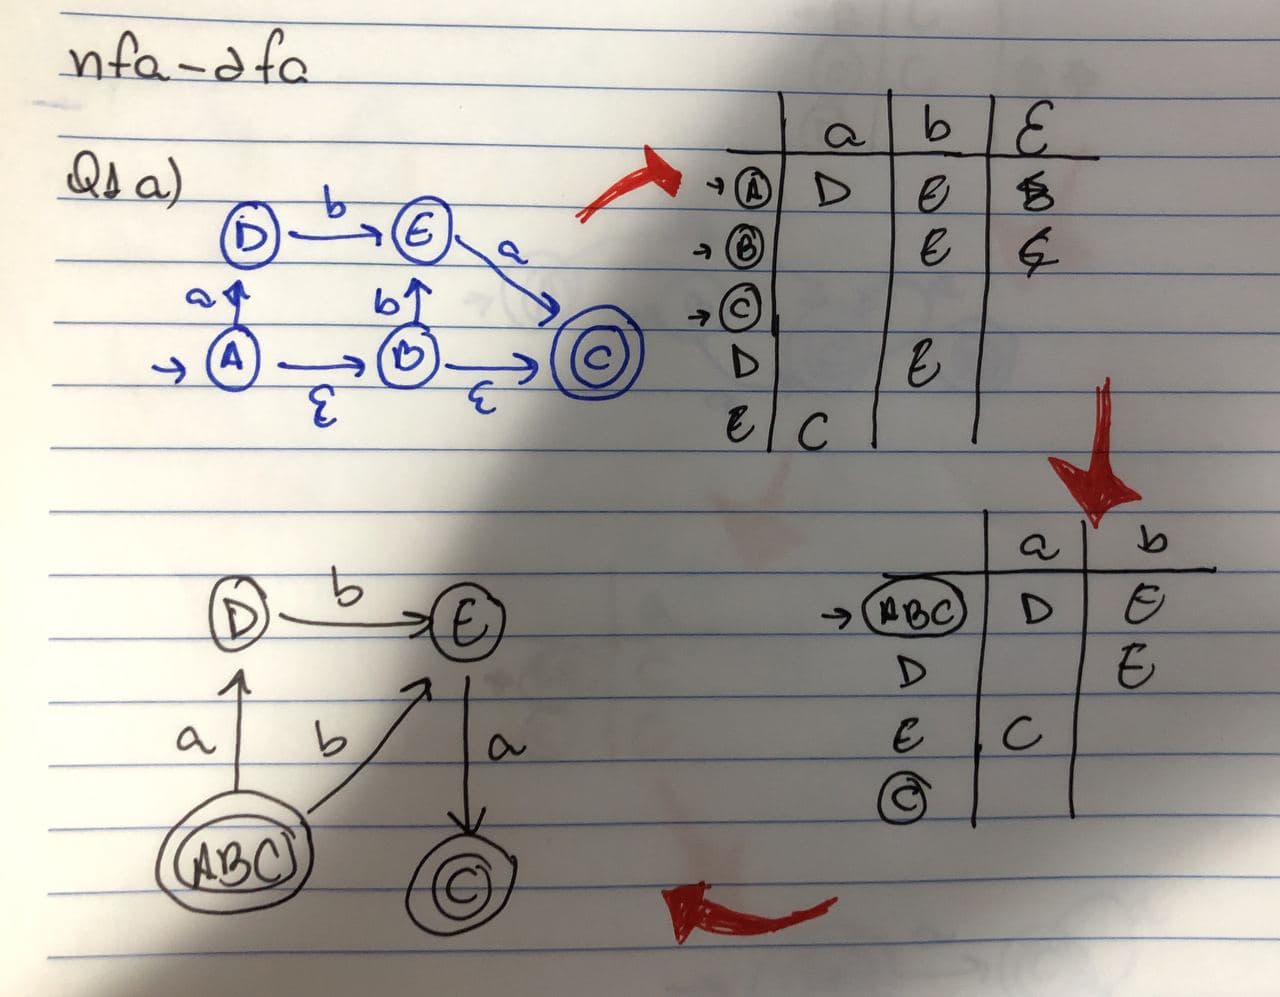 nfa-dfa
Q1 a)
D b E a
a b
A ε B ε C
a b ε
A D E
B E
C
D E
E C
a b
ABC D E
D E
E C
C
D b E
a b a
ABC C